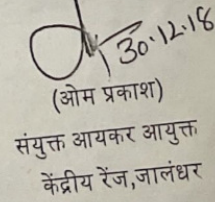 30.12.18
(ओम प्रकाश)
संयुक्त आयकर आयुक्त
केंद्रीय रेंज,जालंधर